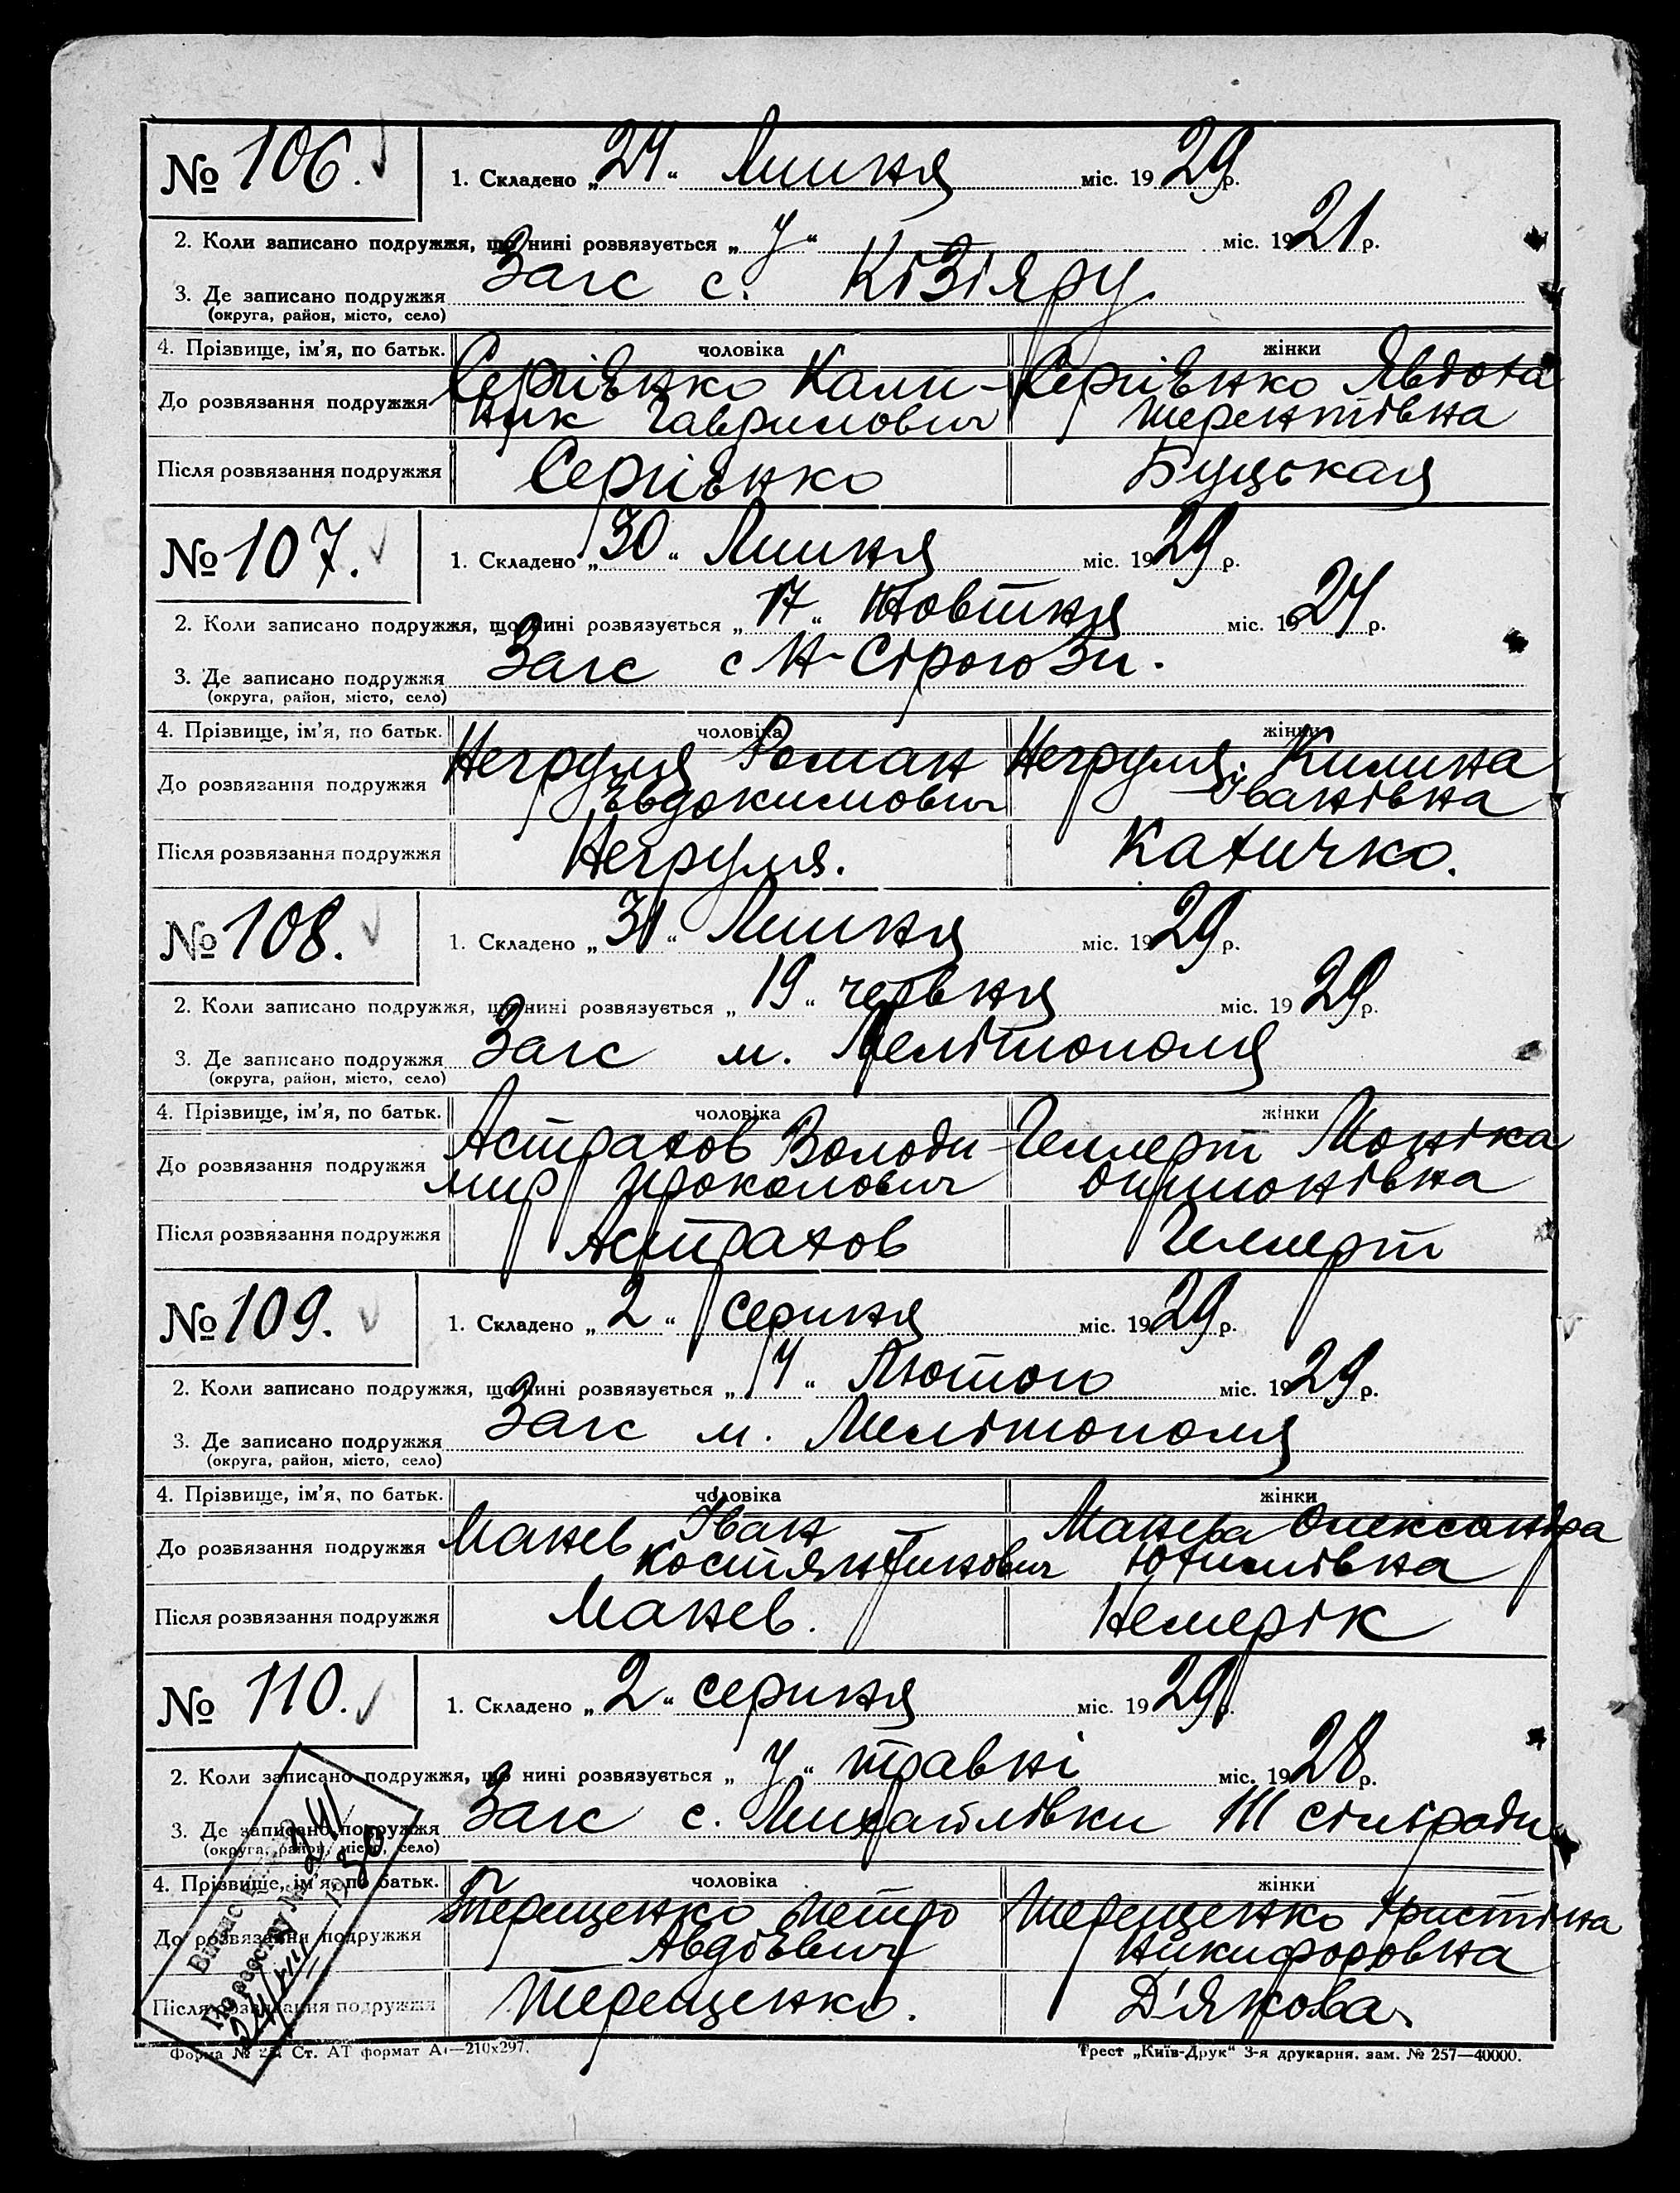 № 106.
1. Складено „24“ Липня міс. 1929 р.
2. Коли записано подружжя, що нині розвязується „У“ міс. 1921 р.
3. Де записано подружжя Загс с. Кізіяру
(округа, район, місто, село)
4. Прізвище, ім’я, по батьк. чоловіка жінки
До розвязання подружжя Сергіэнко Кали- Сергіэнко Явдоха
ник Гаврилович Терентівна
Після розвязання подружжя Сергіэнко Буцькая
№ 107.
1. Складено „30“ Липня міс. 1929 р.
2. Коли записано подружжя, що нині розвязується „17“ Жовтня міс. 1924 р.
3. Де записано подружжя Загс с Н-Сірогози.
(округа, район, місто, село)
4. Прізвище, ім’я, по батьк. чоловіка жінки
До розвязання подружжя Негруля Роман Негруля Килина
Євдокимович Іванівна
Після розвязання подружжя Негруля. Катичко.
№ 108.
1. Складено „31“ Липня міс. 1929 р.
2. Коли записано подружжя, що нині розвязується „19“ червня міс. 1929 р.
3. Де записано подружжя Загс м. Мелітополя
(округа, район, місто, село)
4. Прізвище, ім’я, по батьк. чоловіка жінки
До розвязання подружжя Астрахов Володи- Гемперт Моніка
мир Прокопович
Після розвязання подружжя Астрахов Гемперт
№ 109.
1. Складено „2“ серпня міс. 1929 р.
2. Коли записано подружжя, що нині розвязується „14“ Лютого міс. 1929 р.
3. Де записано подружжя Загс м. Мелітополя
(округа, район, місто, село)
4. Прізвище, ім’я, по батьк. чоловіка жінки
До розвязання подружжя Манев Іван Манева Олександра
Костянтинович Юхимівна
Після розвязання подружжя Манев. Немерік
№ 110.
1. Складено „2“ серпня міс. 1929 р.
2. Коли записано подружжя, що нині розвязується „У“ травні міс. 1928 р.
3. Де записано подружжя Загс с. Михайлівки III сільради
(округа, район, місто, село)
4. Прізвище, ім’я, по батьк. чоловіка жінки
До розвязання подружжя Терещенко Петро Терещенко Христіна
Авдіэвич Никифоровна
Після розвязання подружжя Терещенко. Д'якова.
Форма № Ст. АТ формат А4—210х297.
Трест „Київ-Друк“ 3-я друкарня. зам. № 257—40000.